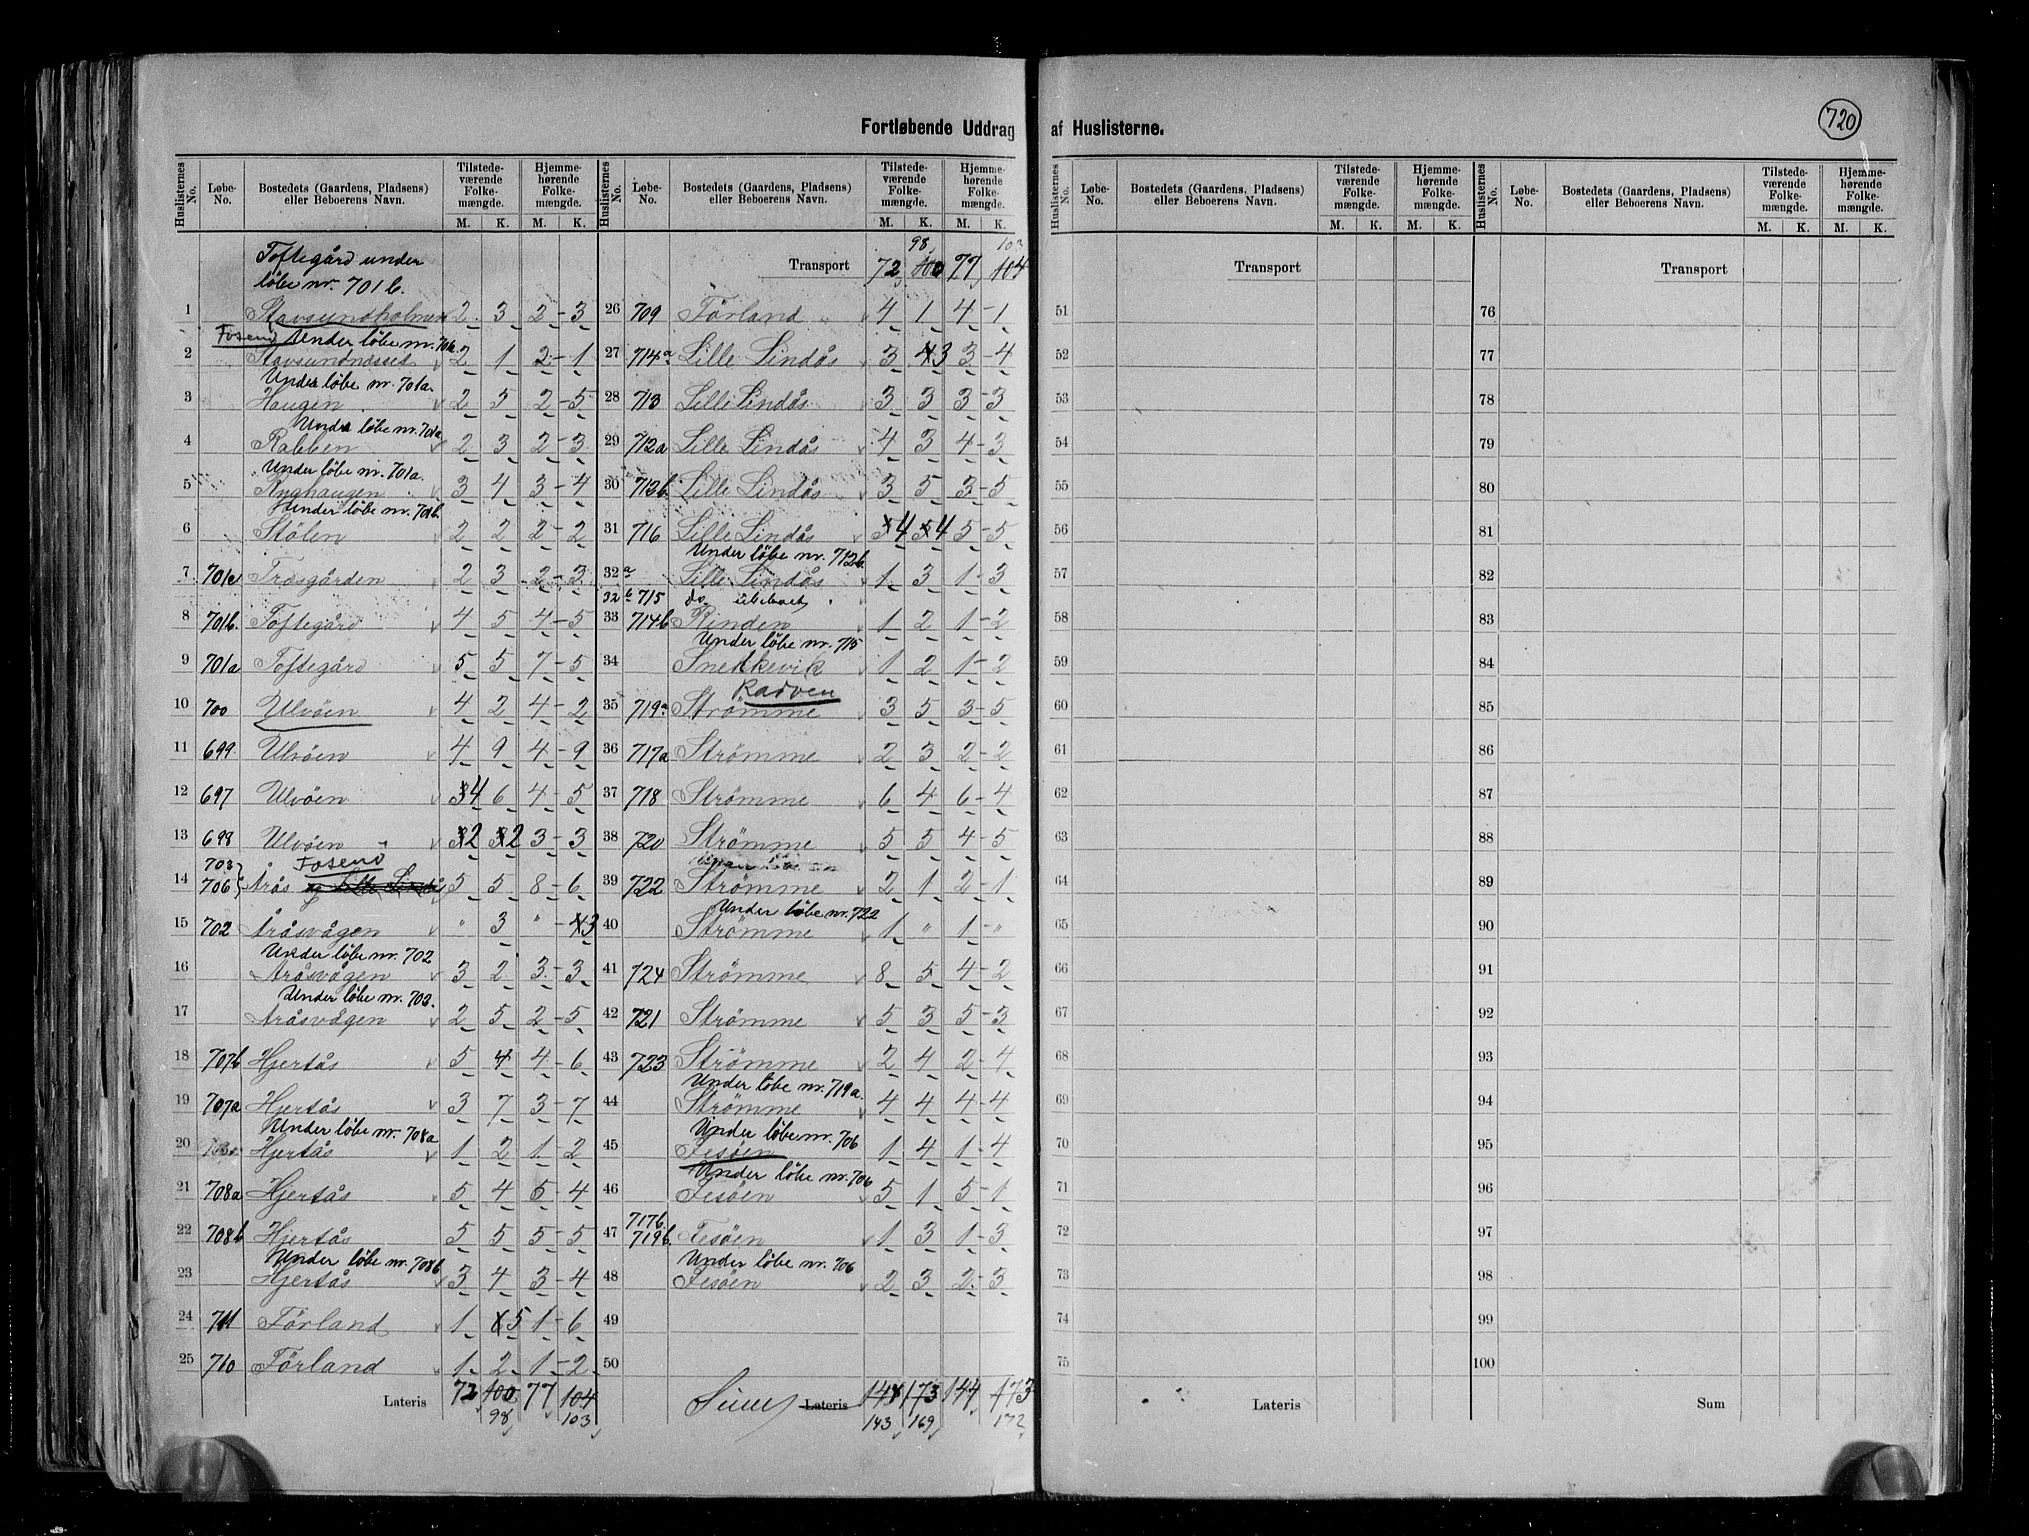 720
Fortløbende Uddrag af Huslisterne.
Huslisternes No. Løbe-No. Bostedets (Gaardens, Pladsens) eller Beboerens Navn. Tilstedeværende Folkemængde. Hjemmehørende Folkemængde. M. K. M. K.
Toftegård under
løbe nr. 701b.
1 Stavsundholmen 2 3 2-3
Fosend Under løbe nr. 701c
2 Stavsundnesset 2 1 2-1
Under løbe nr. 701a.
3 Haugen 2 5 2-5
Under løbe nr. 701a
4 Rabben 2 3 2-3
Under løbe nr. 701a.
5 Ryghaugen 3 4 3-4
Under løbe nr. 701b.
6 Stölen 2 2 2-2
7 701c Træsgården 2 3 2-3
8 701b. Toftegård 4 5 4-5
9 701a Toftegård 5 5 7-5
10 700 Ulvöen 4 2 4-2
11 699. Ulvöen 4 9 4-9
12 697 Ulvöen 34 6 4-5
13 698 Ulvöen 32 32 3-3
703 Fosend
14 706 Årås og Lille Lindås 5 5 8-6
15 702 Åråsvågen " 3 "-43
Under løbe nr. 702
16 Åråsvågen 3 2 3-3
Under løbe nr. 702.
17 Åråsvågen 2 5 2-5
18 707b Hjertås 5 4 4-6
19 707a Hjertås 3 7 3-7
Under løbe nr. 708a
20 Hjertås 1 2 1-2
21 708a Hjertås 5 4 5-4
22 708b Hjertås 5 5 5-5
Under løbe nr. 708b
23 Hjertås 3 4 3-4
24 711 Förland 1 5 1-6
25 710 Förland 1 2 1-2
Lateris 72 100 77 104
98 103
98 103
Transport 72 100 77 104
26 709 Förland 4 1 4-1
27 714a Lille Lindås 3 43 3-4
28 713 Lille Lindås 3 3 3-3
29 712a Lille Lindås 4 3 4-3
30 712b Lille Lindås 3 5 3-5
31 716 Lille Lindås 54 54 5-5
Under løbe nr. 712b.
32a Lille Lindås 1 3 1-3
32b 715 do ubeboet
33 714b Rinden 1 2 1-2
Under løbe nr. 715
34 Snedkevik 1 2 1-2
Radven
35 719a Strömme 3 5 3-5
36 717a Strömme 2 3 2-2
37 718 Strömme 6 4 6-4
38 720 Strömme 5 5 4-5
39 722 Strömme 2 1 2-1
Under løbe nr. 722
40 Strömme 1 " 1-"
41 724 Strömme 8 5 4-2
42 721 Strömme 5 3 5-3
43 723 Strömme 2 4 2-4
Under løbe nr. 719a.
44 Strömme 4 4 4-4
Under løbe nr. 706
45 Fesöen 1 4 1-4
Under løbe nr. 706
46 Fesöen 5 1 5-1
717b.
47 719b. Fesöen 1 3 1-3
Under løbe nr. 706
48 Fesöen 2 3 2-3
49
50
Sum Lateris 148 173 144 173
143 169 172
Huslisternes No. Løbe-No. Bostedets (Gaardens, Pladsens) eller Beboerens Navn. Tilstedeværende Folkemængde. Hjemmehørende Folkemængde. M. K. M. K.
Transport
51
52
53
54
55
56
57
58
59
60
61
62
63
64
65
66
67
68
69
70
71
72
73
74
75
Lateris
Transport
76
77
78
79
80
81
82
83
84
85
86
87
88
89
90
91
92
93
94
95
96
97
98
99
100
Sum